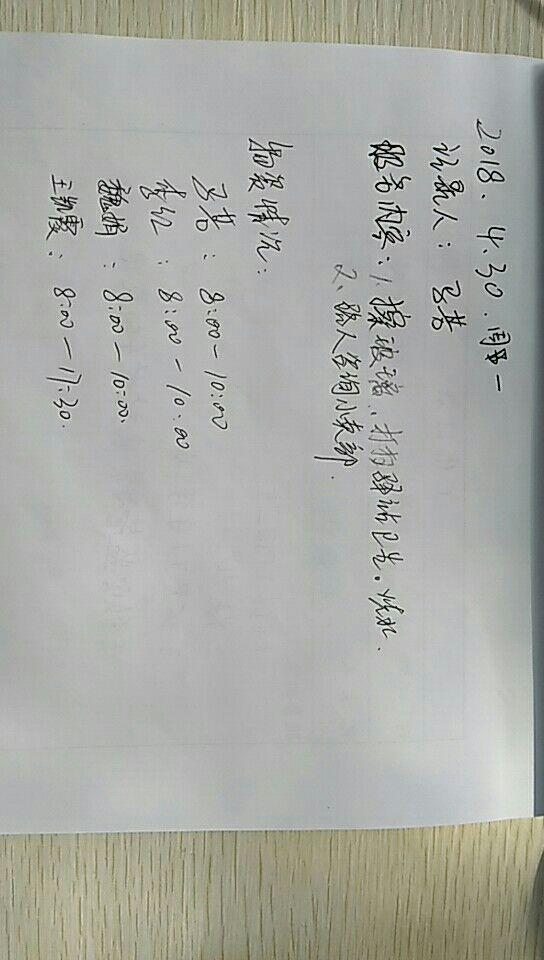 2018.4.30.周一
记录人：马芸
服务内容：1.擦玻璃、打扫驿站卫生。烧水.
2、路人咨询小卖部.
物资情况：
马芸：8:00—10:00
李红：8:00—10:00
魏娟：8:00—10:00.
王凯霞：8:00—17:30.